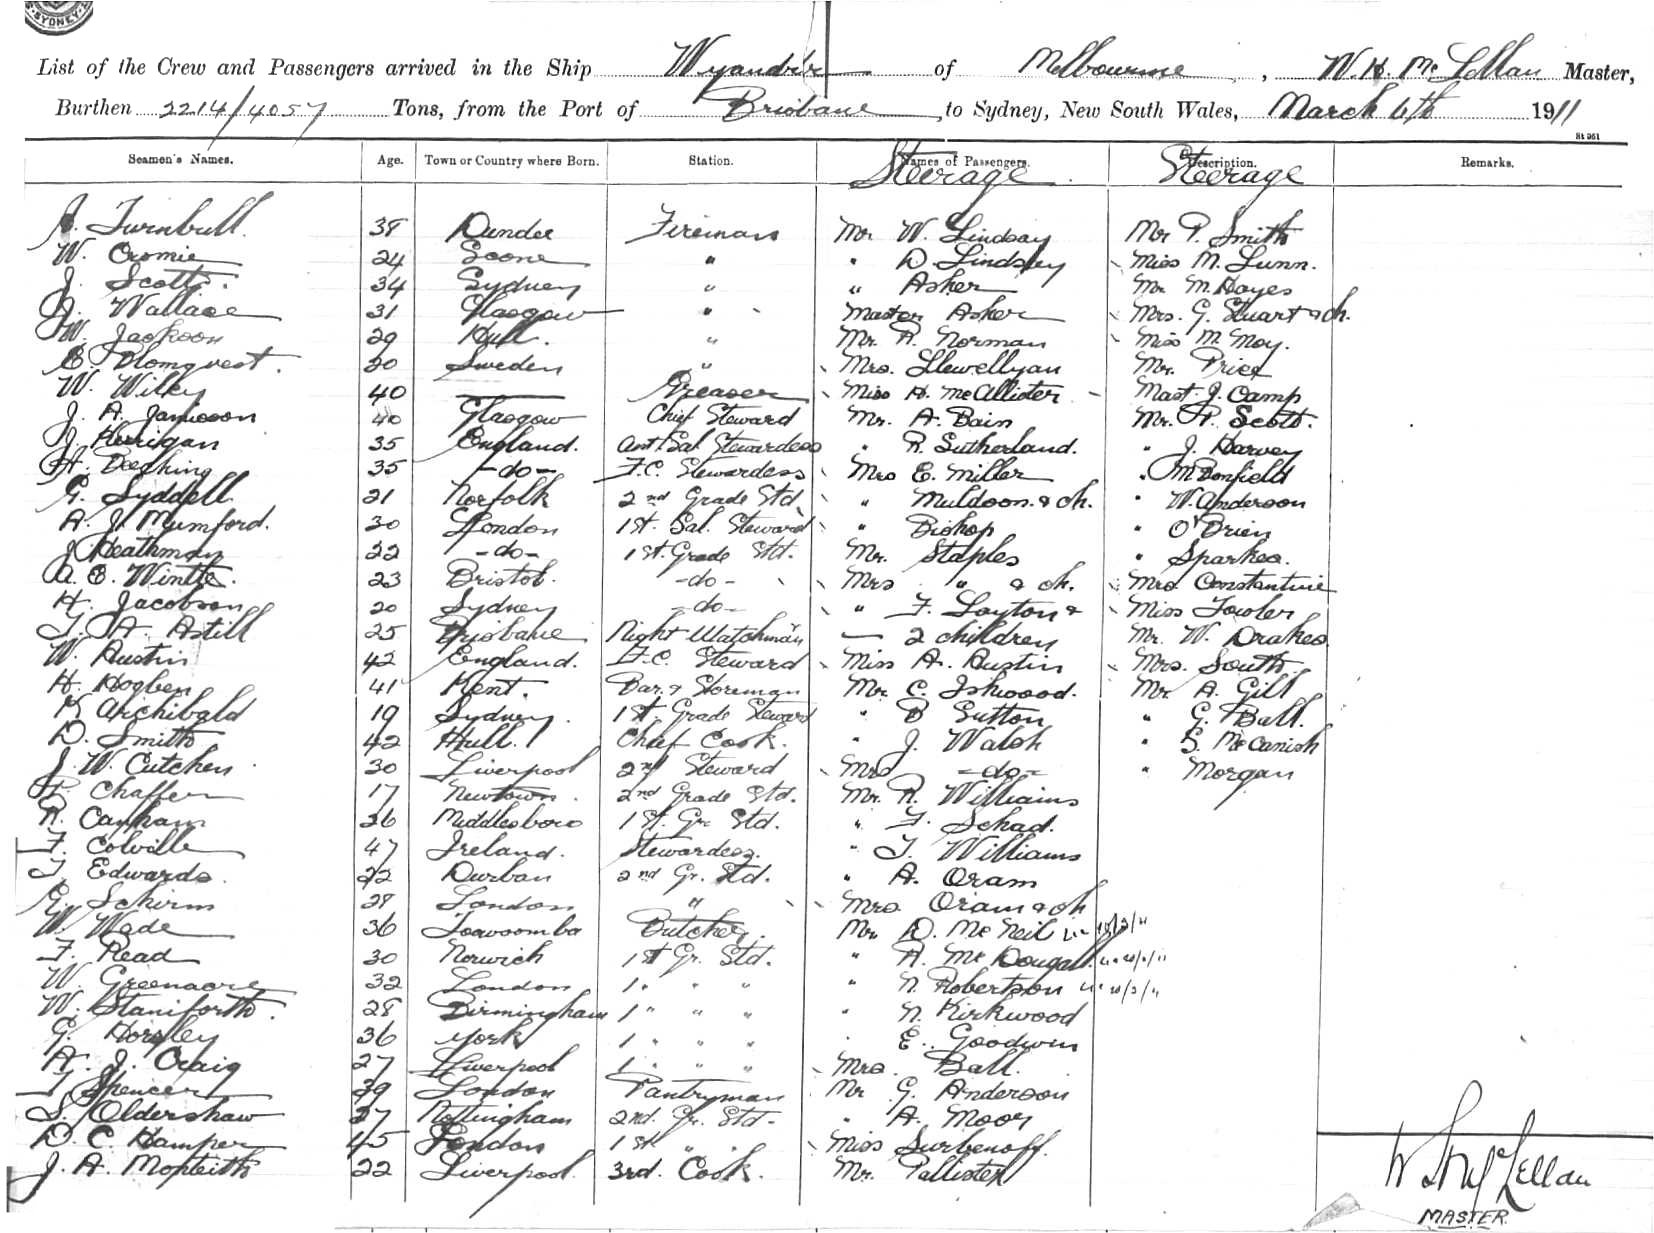 SYDNEY
List of the Crew and Passengers arrived in the Ship Wyandra of Melbourne, W. H. McLellan Master,
Burthen 2214/4057 Tons, from the Port of Brisbane, to Sydney, New South Wales, March 6th 1911
St 961
Seamen's Names. Age. Town or Country where Born. Station. Names of Passengers. Description. Remarks.
Steerage Steerage
J. Turnbull 38 Dundee Fireman Mr W. Lindsay Mr P. Smith
W. Cromie 24 Scone " " D. Lindsley Miss M. Lunn.
J. Scott. 34 Sydney " " Asher Mr M. Hayes
J. Wallace 31 Glasgow " Master Asher Mrs. G. Stuart & ch.
W. Jackson 29 Hull. " Mr. A. Norman Miss M. Moy.
E. Blomqvest. 20 Sweden " Mrs. Llewellyan Mr. Price
W. Wiley 40 — Greaser Miss A. McAllister Mast. J. Camp
J. A. Jamieson 40 Glasgow Chief Steward Mr. A. Bain Mr. R. Scott.
J. Kerrigan 35 England. Asst Sal. Stewardess " R. Sutherland. " J. Harvey
A. Deeching 35 -do- F.C. Stewardess Mrs E. Miller " M Bonfield
G. Syddell 21 Norfolk 2nd Grade Std. " Muldoon. & ch. " W. Anderson
A. J. Mumford. 30 London 1st. Sal. Steward " Bishop " O'Brien
J. Heathman 22 -do- 1st. Grade Std. Mr. Staples " Sparkes.
A. E. Wintle. 23 Bristol. -do- Mrs " & ch. Mrs. Constantine
H. Jacobson 20 Sydney -do- " F. Layton & Miss Fowler
T. A. Astill 25 Brisbane Night Watchman — 2 children Mr. W. Drakes
W. Austin 42 England. F.C. Steward Miss A. Austin Mrs. South
H. Hogben 41 Kent. Bar. & Storeman Mr. C. Ishwood. Mr. A. Gill
Archibald 19 Sydney. 1st. Grade Steward " B Sutton " G. Ball.
D. Smith 42 Hull. Chief Cook. " J. Walsh " S. McCanish
J. W. Cutchen 30 Liverpool 2nd Steward Mrs -do- " Morgan
F. Chaffer 17 Newtown. 2nd Grade Std. Mr. R. Williams
R. Canham 26 Middlesboro 1st. Gr. Std. " F. Schad.
F. Colville 47 Ireland. Stewardess. " T. Williams
T. Edwards. 22 Durban 2nd Gr. Std. " A. Oram
G. Schirm 28 London " Mrs. Oram & ch
W. Wade 36 Toowoomba Butcher. Mr. D. McNeil
F. Read 30 Norwich 1st Gr. Std. " A. McDougall
W. Greenacre 32 London 1 " " " " N. Robertson
W. Staniforth. 28 Birmingham 1 " " " " N. Kirkwood
G. Horsley 36 York 1 " " " " E. Goodwin
A. J. Craig 27 Liverpool 1 " " " Mrs. Ball.
T. Spencer 39 London Pantryman Mr G. Anderson
S. Oldershaw 27 Nottingham 2nd. Gr. Std. " A. Moor
D. C. Hamper 45 London 1st " " Miss Surbenoff.
J. A. Monteith 22 Liverpool. 3rd. Cook. Mr. Pallister
W H McLellan
MASTER.